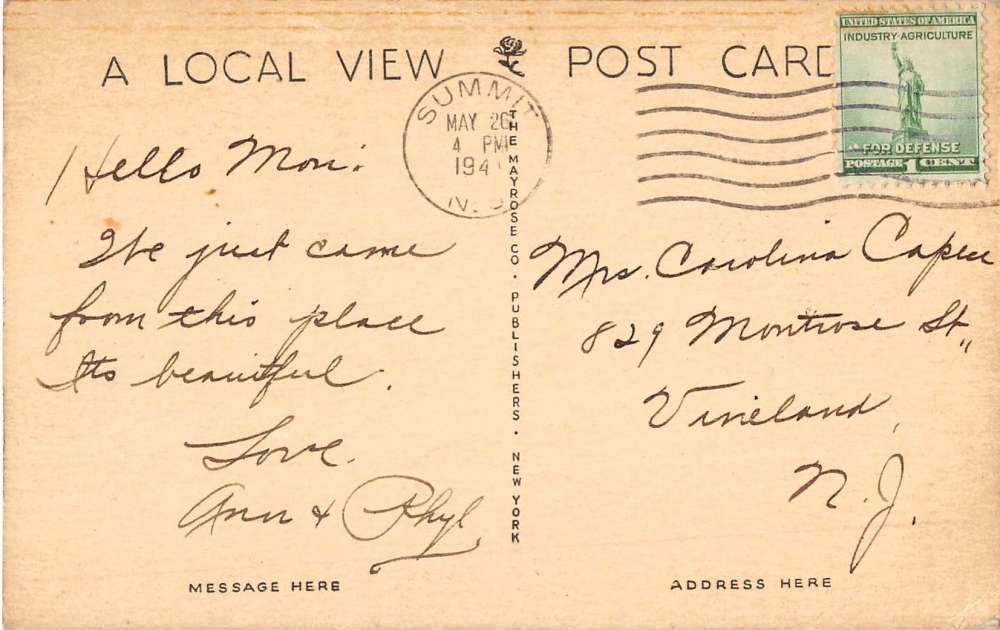 A LOCAL VIEW POST CARD
UNITED STATES OF AMERICA
INDUSTRY AGRICULTURE
FOR DEFENSE
POSTAGE 1 CENT
SUMMIT
MAY 26
4 PM
194
N. J
Hello Mom:
We just came
from this place
Its beautiful.
Love.
Ann & Phyl.
THE MAYROSE CO. PUBLISHERS. NEW YORK
Mrs. Carolina
829 Montrose St.,
Vineland,
N. J.
MESSAGE HERE
ADDRESS HERE